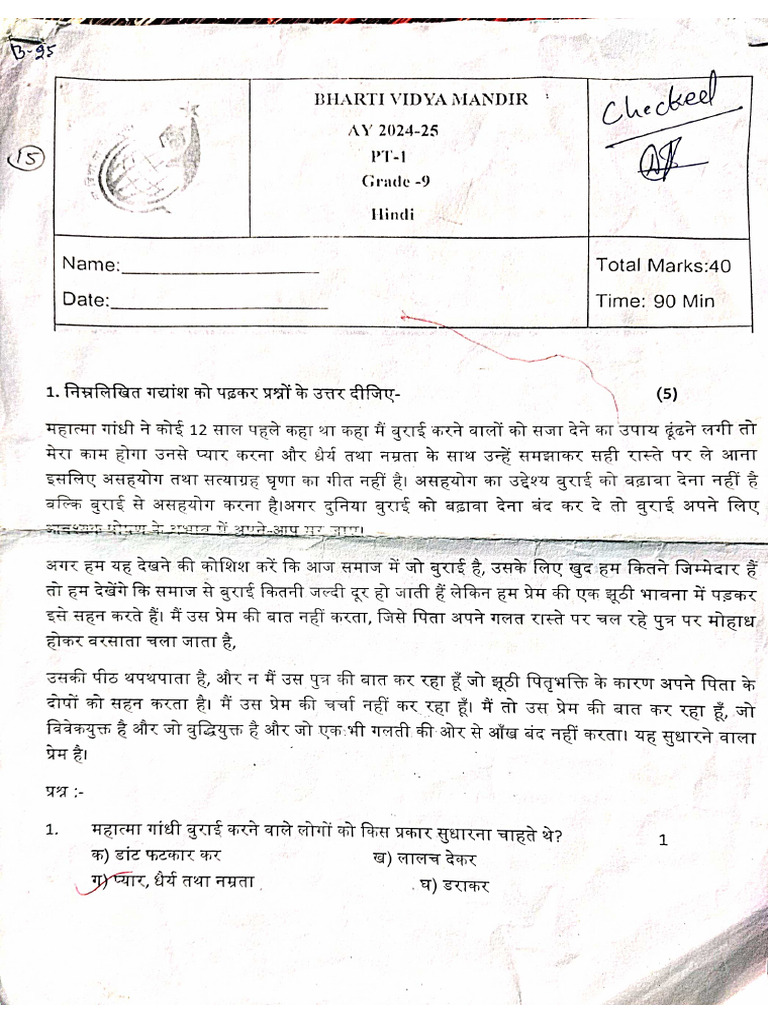 B-25
15
BHARTI VIDYA MANDIR
AY 2024-25
PT-1
Grade -9
Hindi
Checked
Name:
Date:
Total Marks:40
Time: 90 Min
1. निम्नलिखित गद्यांश को पढ़कर प्रश्नों के उत्तर दीजिए- (5)
महात्मा गांधी ने कोई 12 साल पहले कहा था कहा मैं बुराई करने वालों को सजा देने का उपाय ढूंढने लगी तो
मेरा काम होगा उनसे प्यार करना और धैर्य तथा नम्रता के साथ उन्हें समझाकर सही रास्ते पर ले आना
इसलिए असहयोग तथा सत्याग्रह घृणा का गीत नहीं है। असहयोग का उद्देश्य बुराई को बढ़ावा देना नहीं है
बल्कि बुराई से असहयोग करना है।अगर दुनिया बुराई को बढ़ावा देना बंद कर दे तो बुराई अपने लिए
आवश्यक पोषण के अभाव में अपने-आप मर जाए।
अगर हम यह देखने की कोशिश करें कि आज समाज में जो बुराई है, उसके लिए खुद हम कितने जिम्मेदार हैं
तो हम देखेंगे कि समाज से बुराई कितनी जल्दी दूर हो जाती हैं लेकिन हम प्रेम की एक झूठी भावना में पड़कर
इसे सहन करते हैं। मैं उस प्रेम की बात नहीं करता, जिसे पिता अपने गलत रास्ते पर चल रहे पुत्र पर मोहाध
होकर बरसाता चला जाता है,
उसकी पीठ थपथपाता है, और न मैं उस पुत्र की बात कर रहा हूँ जो झूठी पितृभक्ति के कारण अपने पिता के
दोपों को सहन करता है। मैं उस प्रेम की चर्चा नहीं कर रहा हूँ। मैं तो उस प्रेम की बात कर रहा हूँ, जो
विवेकयुक्त है और जो बुद्धियुक्त है और जो एक भी गलती की ओर से आँख बंद नहीं करता। यह सुधारने वाला
प्रेम है।
प्रश्न :-
1. महात्मा गांधी बुराई करने वाले लोगों को किस प्रकार सुधारना चाहते थे? 1
क) डांट फटकार कर ख) लालच देकर
ग) प्यार, धैर्य तथा नम्रता घ) डराकर